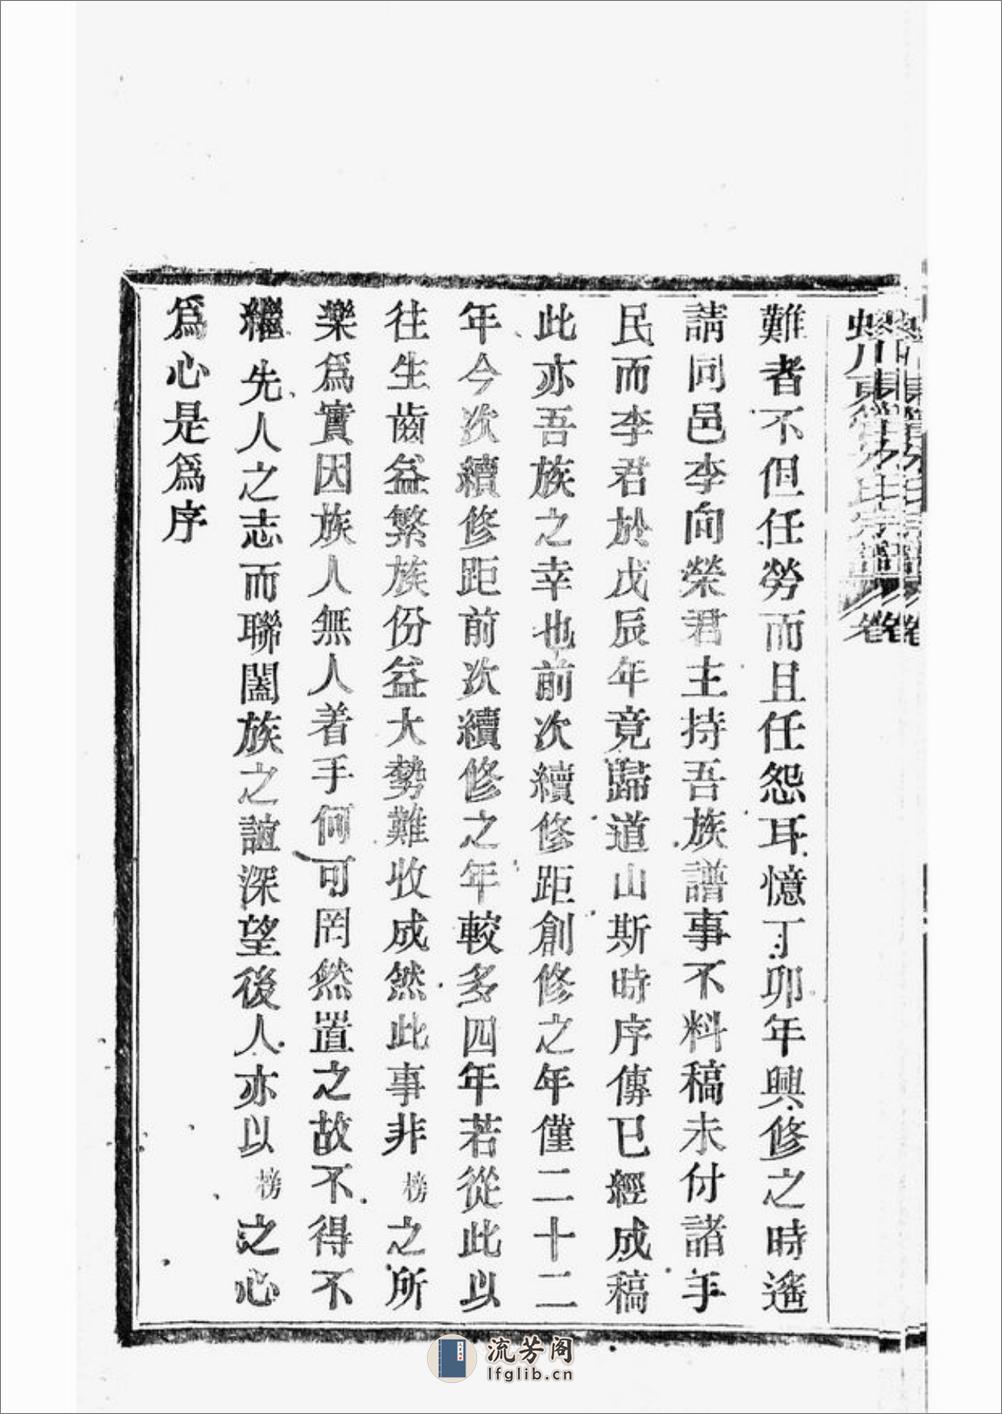 難者不但任勞而且任怨耳憶丁卯年興修之時遙
請同邑李向榮君主持吾族譜事不料稿未付諸手
民而李君於戊辰年竟歸道山斯時序傳已經成稿
此亦吾族之幸也前次續修距創修之年僅二十二
年今次續修距前次續修之年較多四年若從此以
往生齒益繁族份益大勢難收成然此事非榜之所
樂爲實因族人無人着手何可罔然置之故不得不
繼先人之志而聯闔族之誼深望後人亦以榜之心
爲心是爲序
流芳阁
lfglib.cn